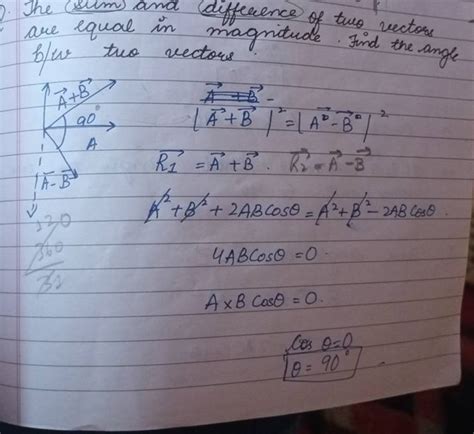 The sum and difference of two vectors
are equal in magnitude. Find the angle
b/w two vectors.
A + B
90°
A
A - B
A + B -
|A + B|² = |A - B|²
R1 = A + B. R2 = A - B
A² + B² + 2ABCosθ = A² + B² - 2ABCosθ.
4ABCosθ = 0.
A x B Cosθ = 0.
Cos θ = 0
θ = 90°